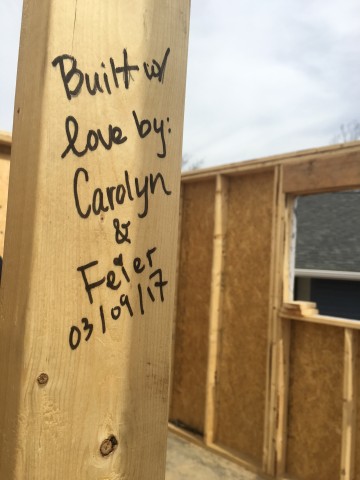 Built w/
love by:
Carolyn
&
Feier
03/09/17